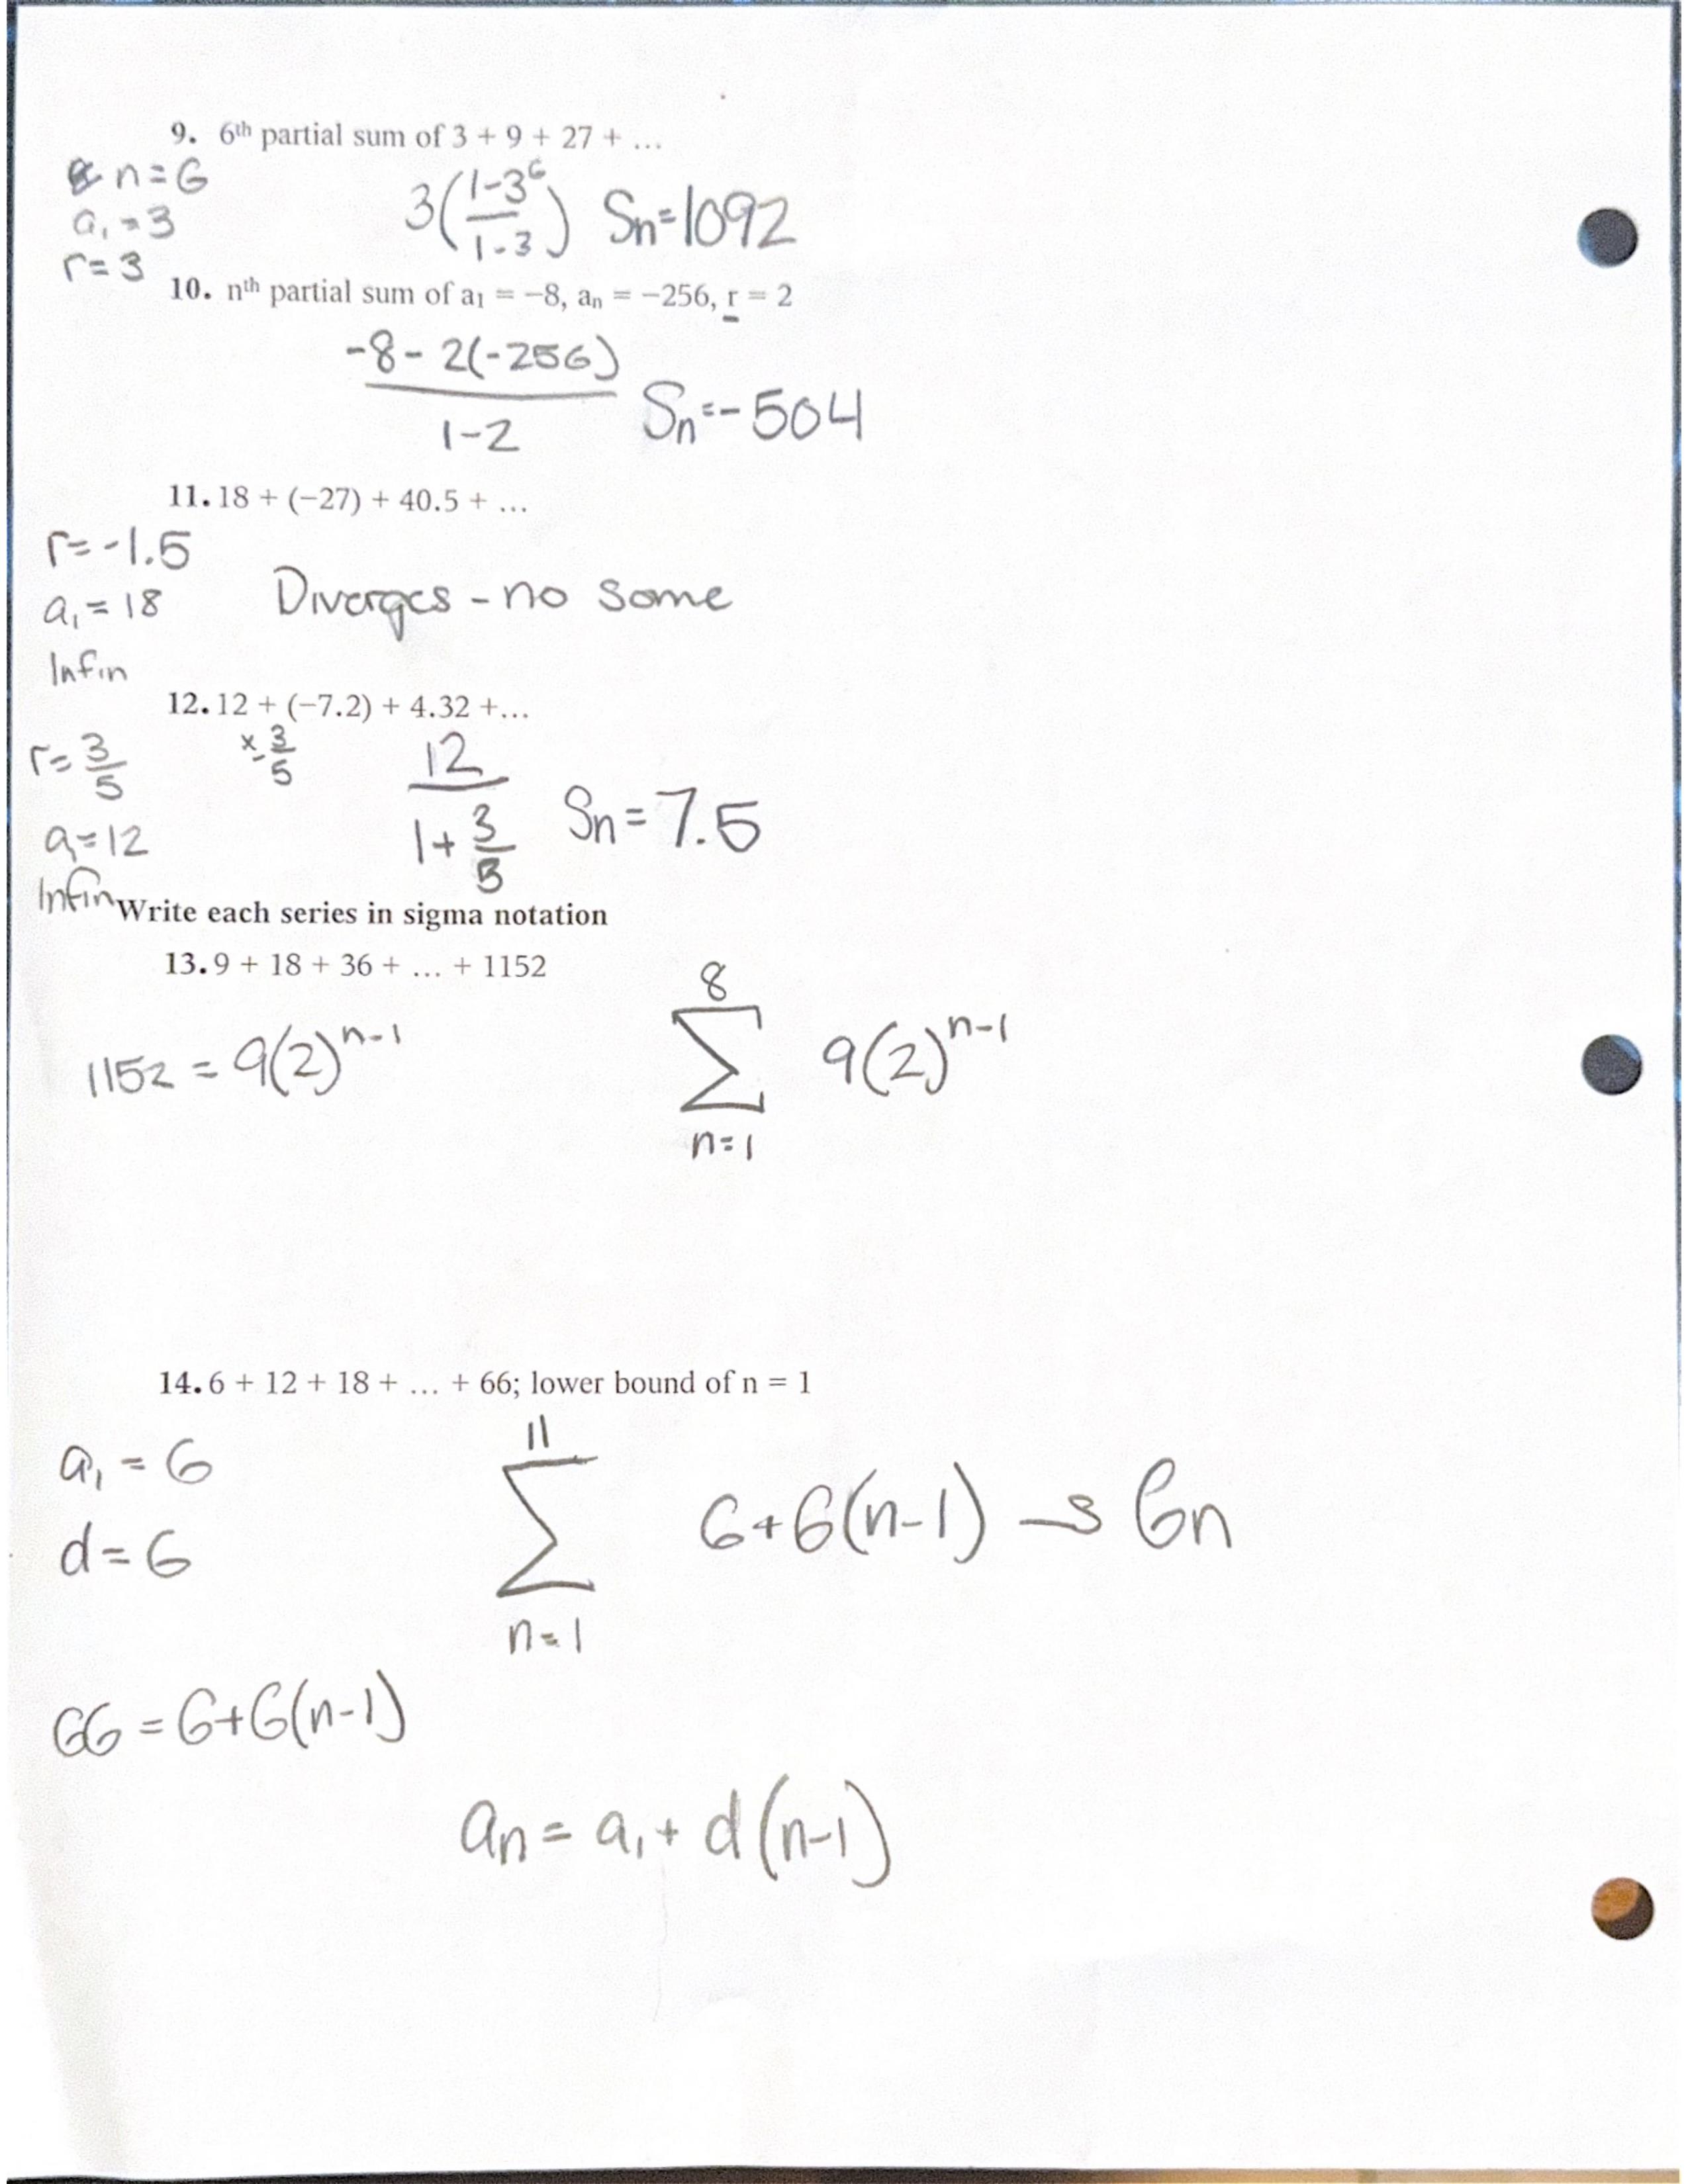 9. 6th partial sum of 3 + 9 + 27 + ...
n=6
a₁=3
r=3
3(1-3⁶/1-3) Sn=1092
10. nth partial sum of a₁ = −8, aₙ = −256, r = 2
-8-2(-256)/1-2 Sn=-504
11. 18 + (−27) + 40.5 + ...
r=-1.5
a₁=18
Infin
Diverges - no some
12. 12 + (−7.2) + 4.32 +...
r=3/5
a₁=12
Infin
x-3/5
12/1+3/5 Sn=7.5
Write each series in sigma notation
13. 9 + 18 + 36 + ... + 1152
1152=9(2)ⁿ⁻¹
8
∑ 9(2)ⁿ⁻¹
n=1
14. 6 + 12 + 18 + ... + 66; lower bound of n = 1
a₁=6
d=6
11
∑ 6+6(n-1) → 6n
n=1
66=6+6(n-1)
an=a₁+d(n-1)